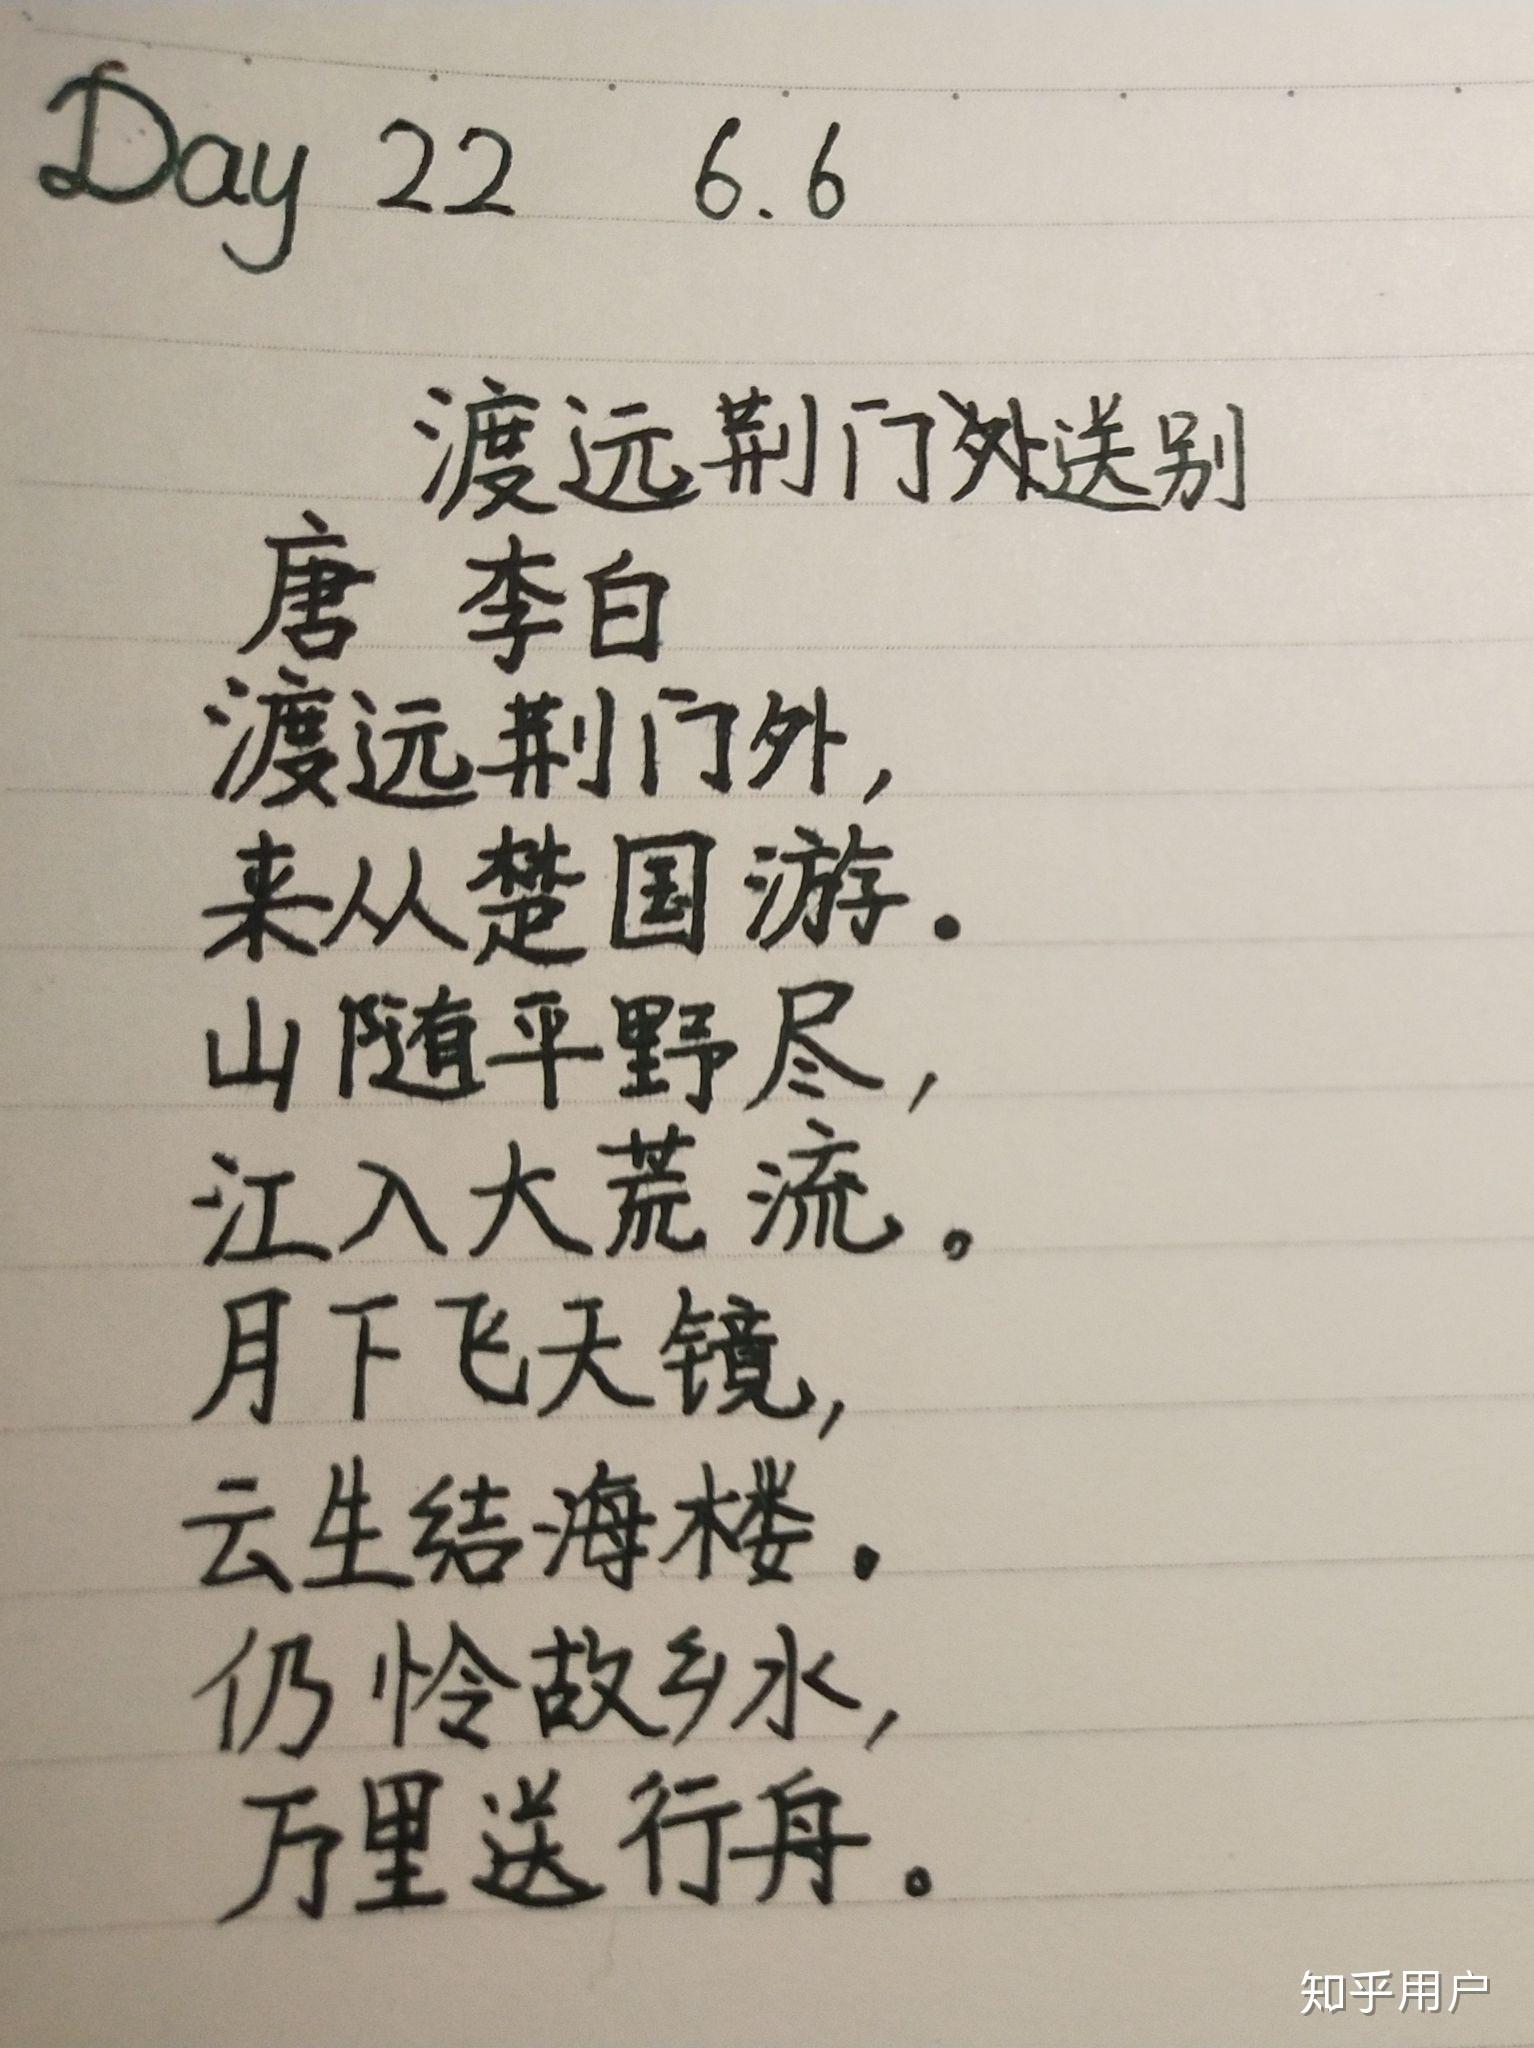 Day 22 6.6
渡远荆门送别
唐 李白
渡远荆门外,
来从楚国游.
山随平野尽,
江入大荒流。
月下飞天镜,
云生结海楼.
仍怜故乡水,
万里送行舟。
知乎用户